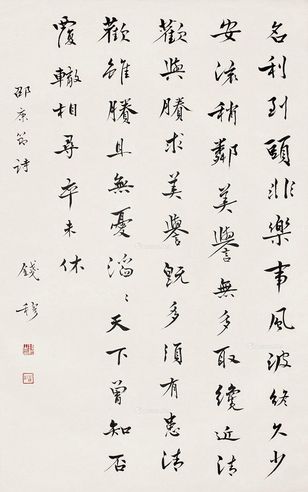 名利到頭非樂事風波終久少
安流稍鄰美譽無多取纔近清
歡與賸求美譽既多須有患清
歡雖賸且無憂滔〻天下曾知否
覆轍相尋卒未休
邵康節詩
錢穆